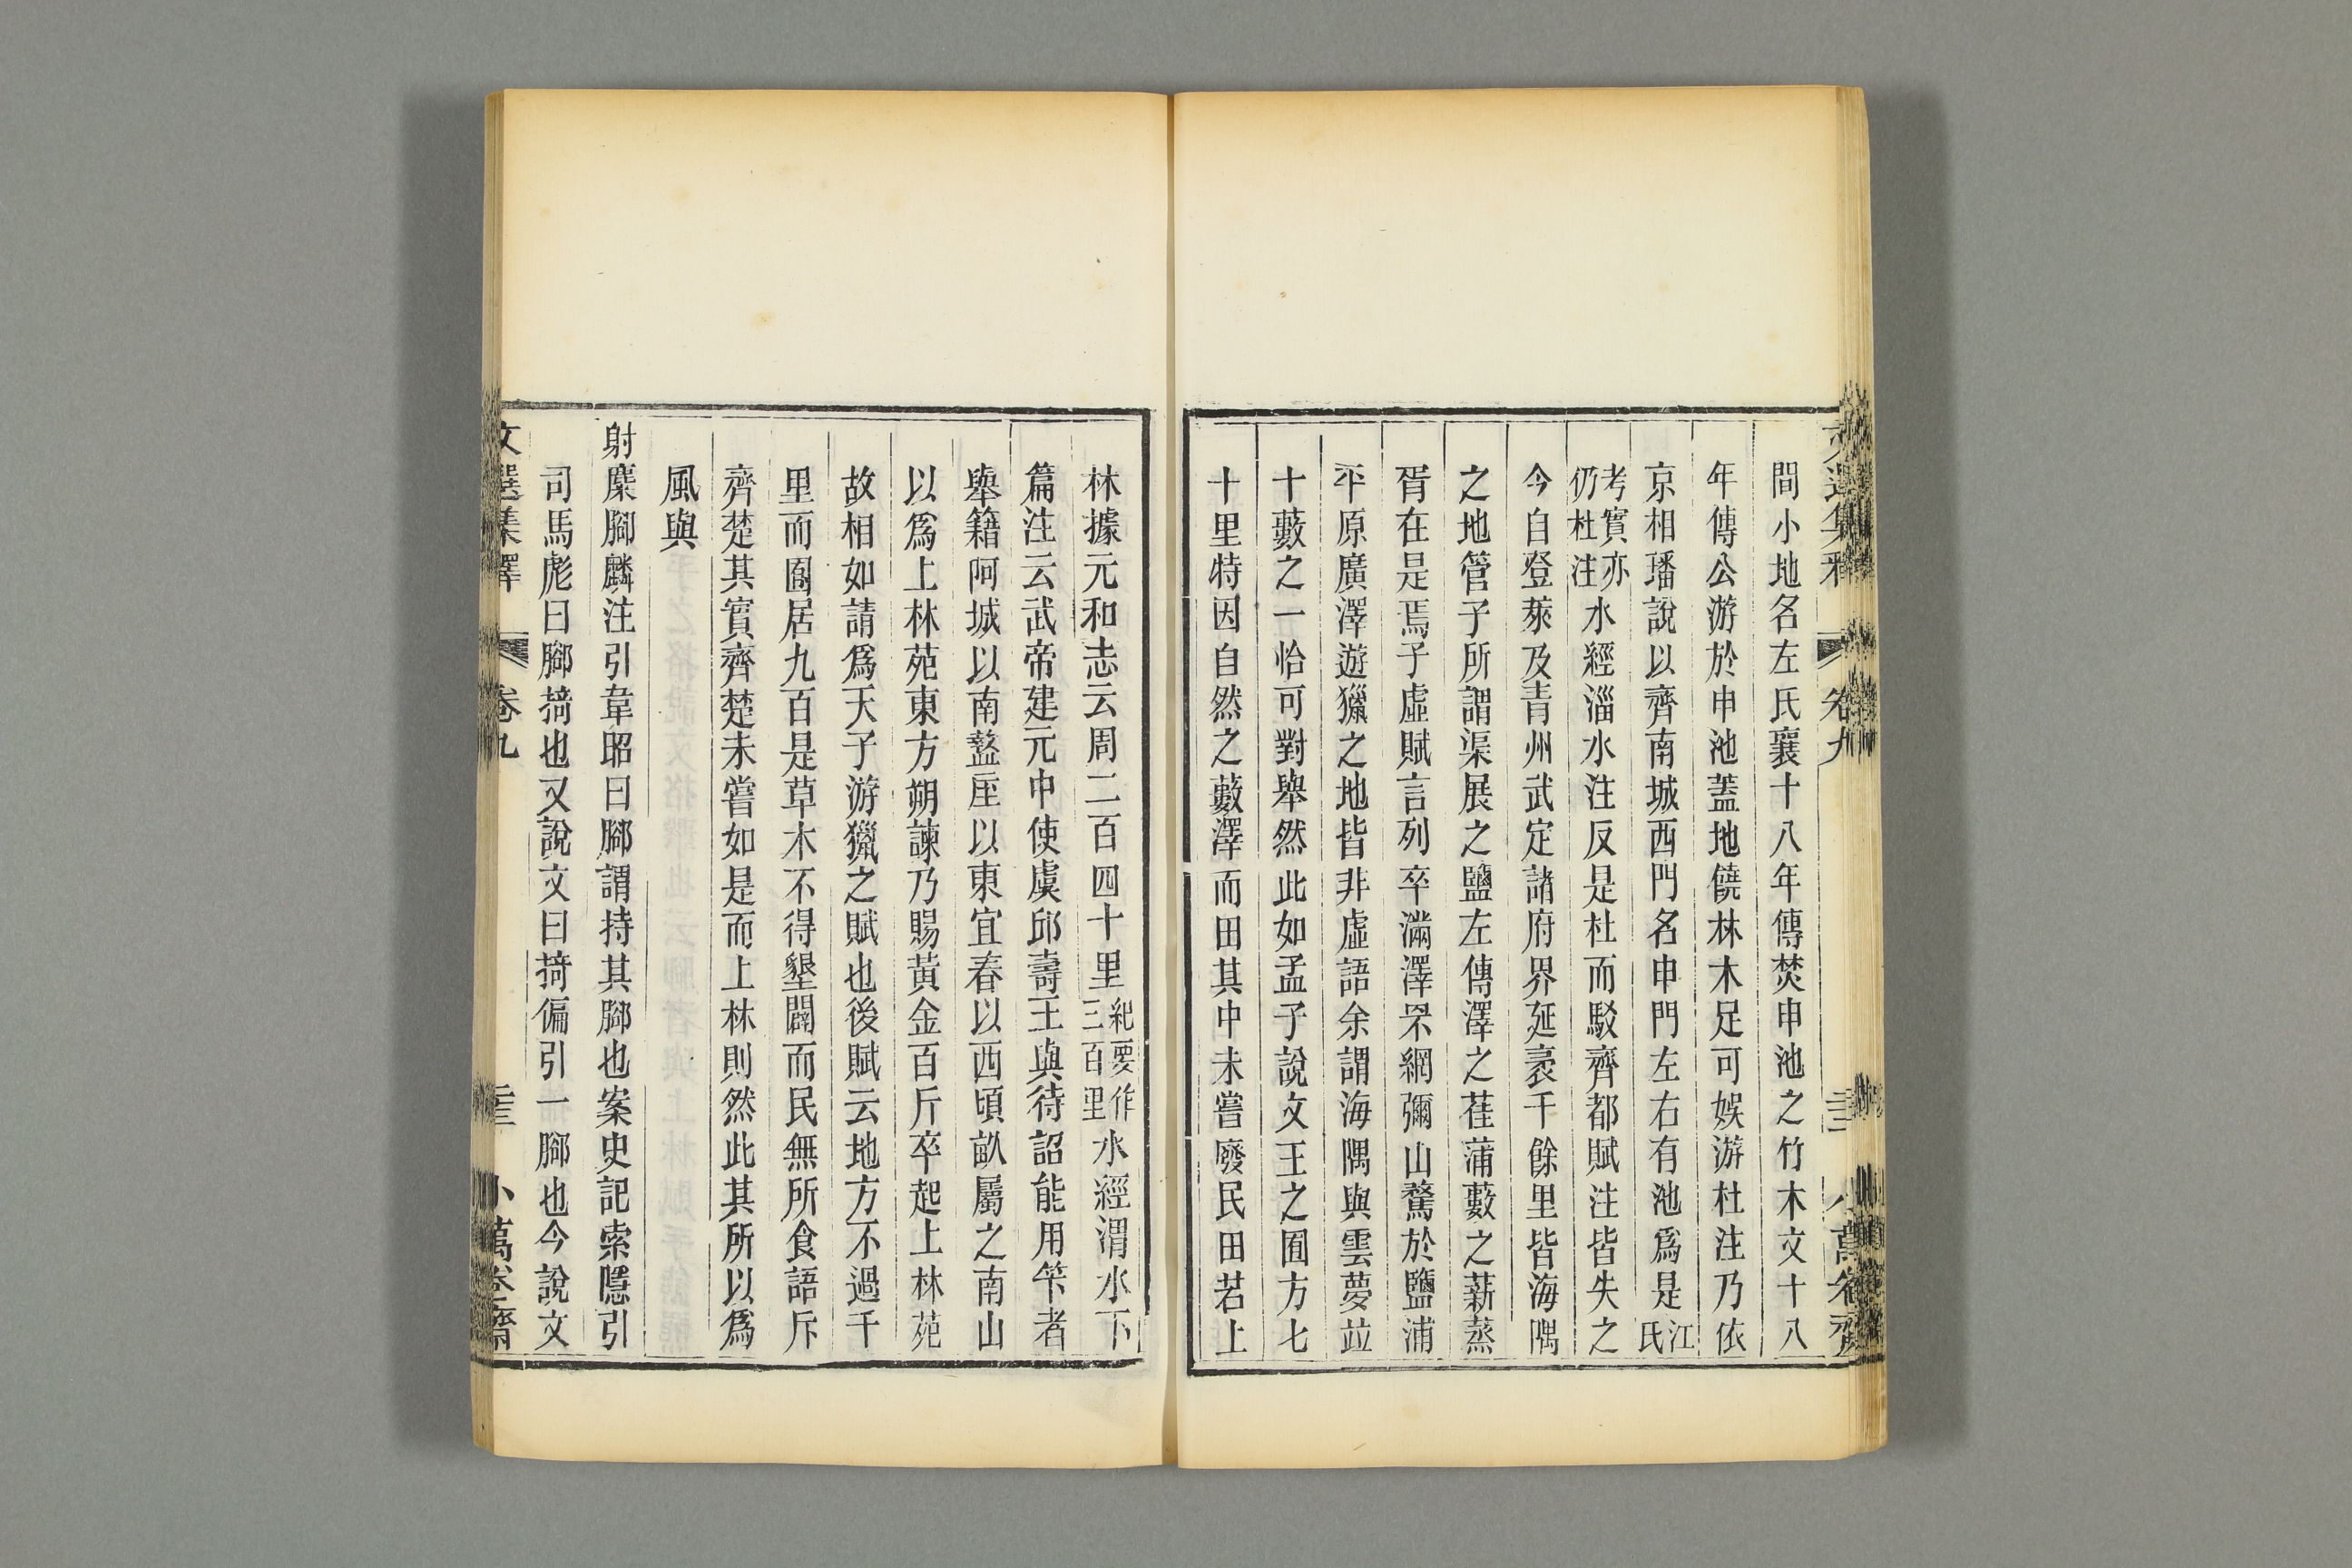 間小地名左氏襄十八年傳焚申池之竹木文十八
年傳公游於申池蓋地饒林木足可娛游杜注乃依
京相璠說以齊南城西門名申門左右有池爲是江氏
考實亦仍杜注水經淄水注反是杜而駁齊都賦注皆失之
今自登萊及青州武定諸府界延袤千餘里皆海隅
之地管子所謂渠展之鹽左傳澤之萑蒲藪之薪蒸
胥在是焉子虛賦言列卒滿澤罘網彌山騖於鹽浦
平原廣澤遊獵之地皆非虛語余謂海隅與雲夢竝
十藪之一恰可對舉然此如孟子說文王之囿方七
十里特因自然之藪澤而田其中未嘗廢民田若上
林據元和志云周二百四十里紀要作三百里水經渭水下
篇注云武帝建元中使虞邱壽王與待詔能用筭者
舉籍阿城以南盩厔以東宜春以西頃畝屬之南山
以爲上林苑東方朔諫乃賜黃金百斤卒起上林苑
故相如請爲天子游獵之賦也後賦云地方不過千
里而囿居九百是草木不得墾闢而民無所食語斥
齊楚其實齊楚未嘗如是而上林則然此其所以爲
風與
射麋腳麟注引韋昭曰腳謂持其腳也案史記索隱引
司馬彪曰腳掎也又說文曰掎偏引一腳也今說文
文選集釋 卷九 小萬卷齋